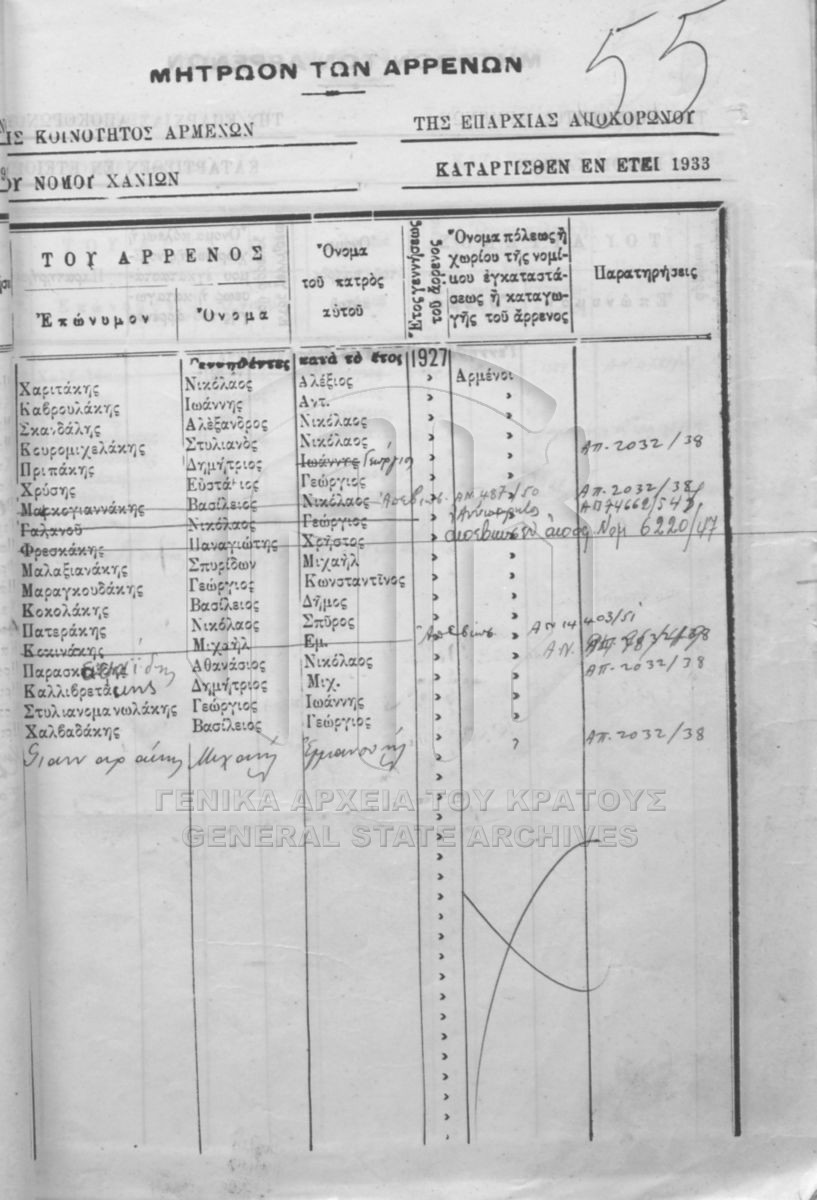 55
ΜΗΤΡΩΟΝ ΤΩΝ ΑΡΡΕΝΩΝ
ΗΣ ΚΟΙΝΟΤΗΤΟΣ ΑΡΜΕΝΩΝ ΤΗΣ ΕΠΑΡΧΙΑΣ ΑΠΟΚΟΡΩΝΟΥ
ΟΥ ΝΟΜΟΥ ΧΑΝΙΩΝ ΚΑΤΑΡΤΙΣΘΕΝ ΕΝ ΕΤΕΙ 1933
ΤΟΥ ΑΡΡΕΝΟΣ
Ἐπώνυμον Ὄνομα
Ὄνομα
τοῦ πατρὸς
αὐτοῦ
Ἔτος γεννήσεως
τοῦ ἄρρενος
Ὄνομα πόλεως ἢ
χωρίου τῆς νομί-
μου ἐγκαταστά-
σεως ἢ καταγω-
γῆς τοῦ ἄρρενος
Παρατηρήσεις
Γεννηθέντες κατὰ τὸ ἔτος 1927
Χαριτάκης Νικόλαος Ἀλέξιος » Ἀρμένοι
Καβρουλάκης Ἰωάννης Ἀντ. » »
Σκανδάλης Ἀλέξανδρος Νικόλαος » »
Κουρομιχελάκης Στυλιανὸς Νικόλαος » » ΑΠ. 2032/38
Πριπάκης Δημήτριος Ἰωάννης Γεώργιος » »
Χρύσης Εὐστάθιος Γεώργιος » » ΑΠ. 2032/38
Μαρκογιαννάκης Βασίλειος Νικόλαος Ἀπεβίωσ. ΑΝ 487/50 ΑΠ 74662/54
Γαλανοῦ Νικόλαος Γεώργιος »
Φρεσκάκης Παναγιώτης Χρῆστος » Νομ 6220/47
Μαλαξιανάκης Σπυρίδων Μιχαὴλ » »
Μαραγκουδάκης Γεώργιος Κωνσταντῖνος » »
Κοκολάκης Βασίλειος Δῆμος » »
Πατεράκης Νικόλαος Σπῦρος » »
Κοκινάκης Μιχαὴλ Ἐμ. Ἀπεβίωσ ΑΝ 14403/51
Παρασκευαΐδης Ἀθανάσιος Νικόλαος » » ΑΠ. 2032/38
Καλλιβρετάκης Δημήτριος Μιχ. » »
Στυλιανομανωλάκης Γεώργιος Ἰωάννης » »
Χαλβαδάκης Βασίλειος Γεώργιος » »
Γιανναράκης Μιχαὴλ Ἐμμανουήλ » » ΑΠ. 2032/38
ΓΕΝΙΚΑ ΑΡΧΕΙΑ ΤΟΥ ΚΡΑΤΟΥΣ
GENERAL STATE ARCHIVES